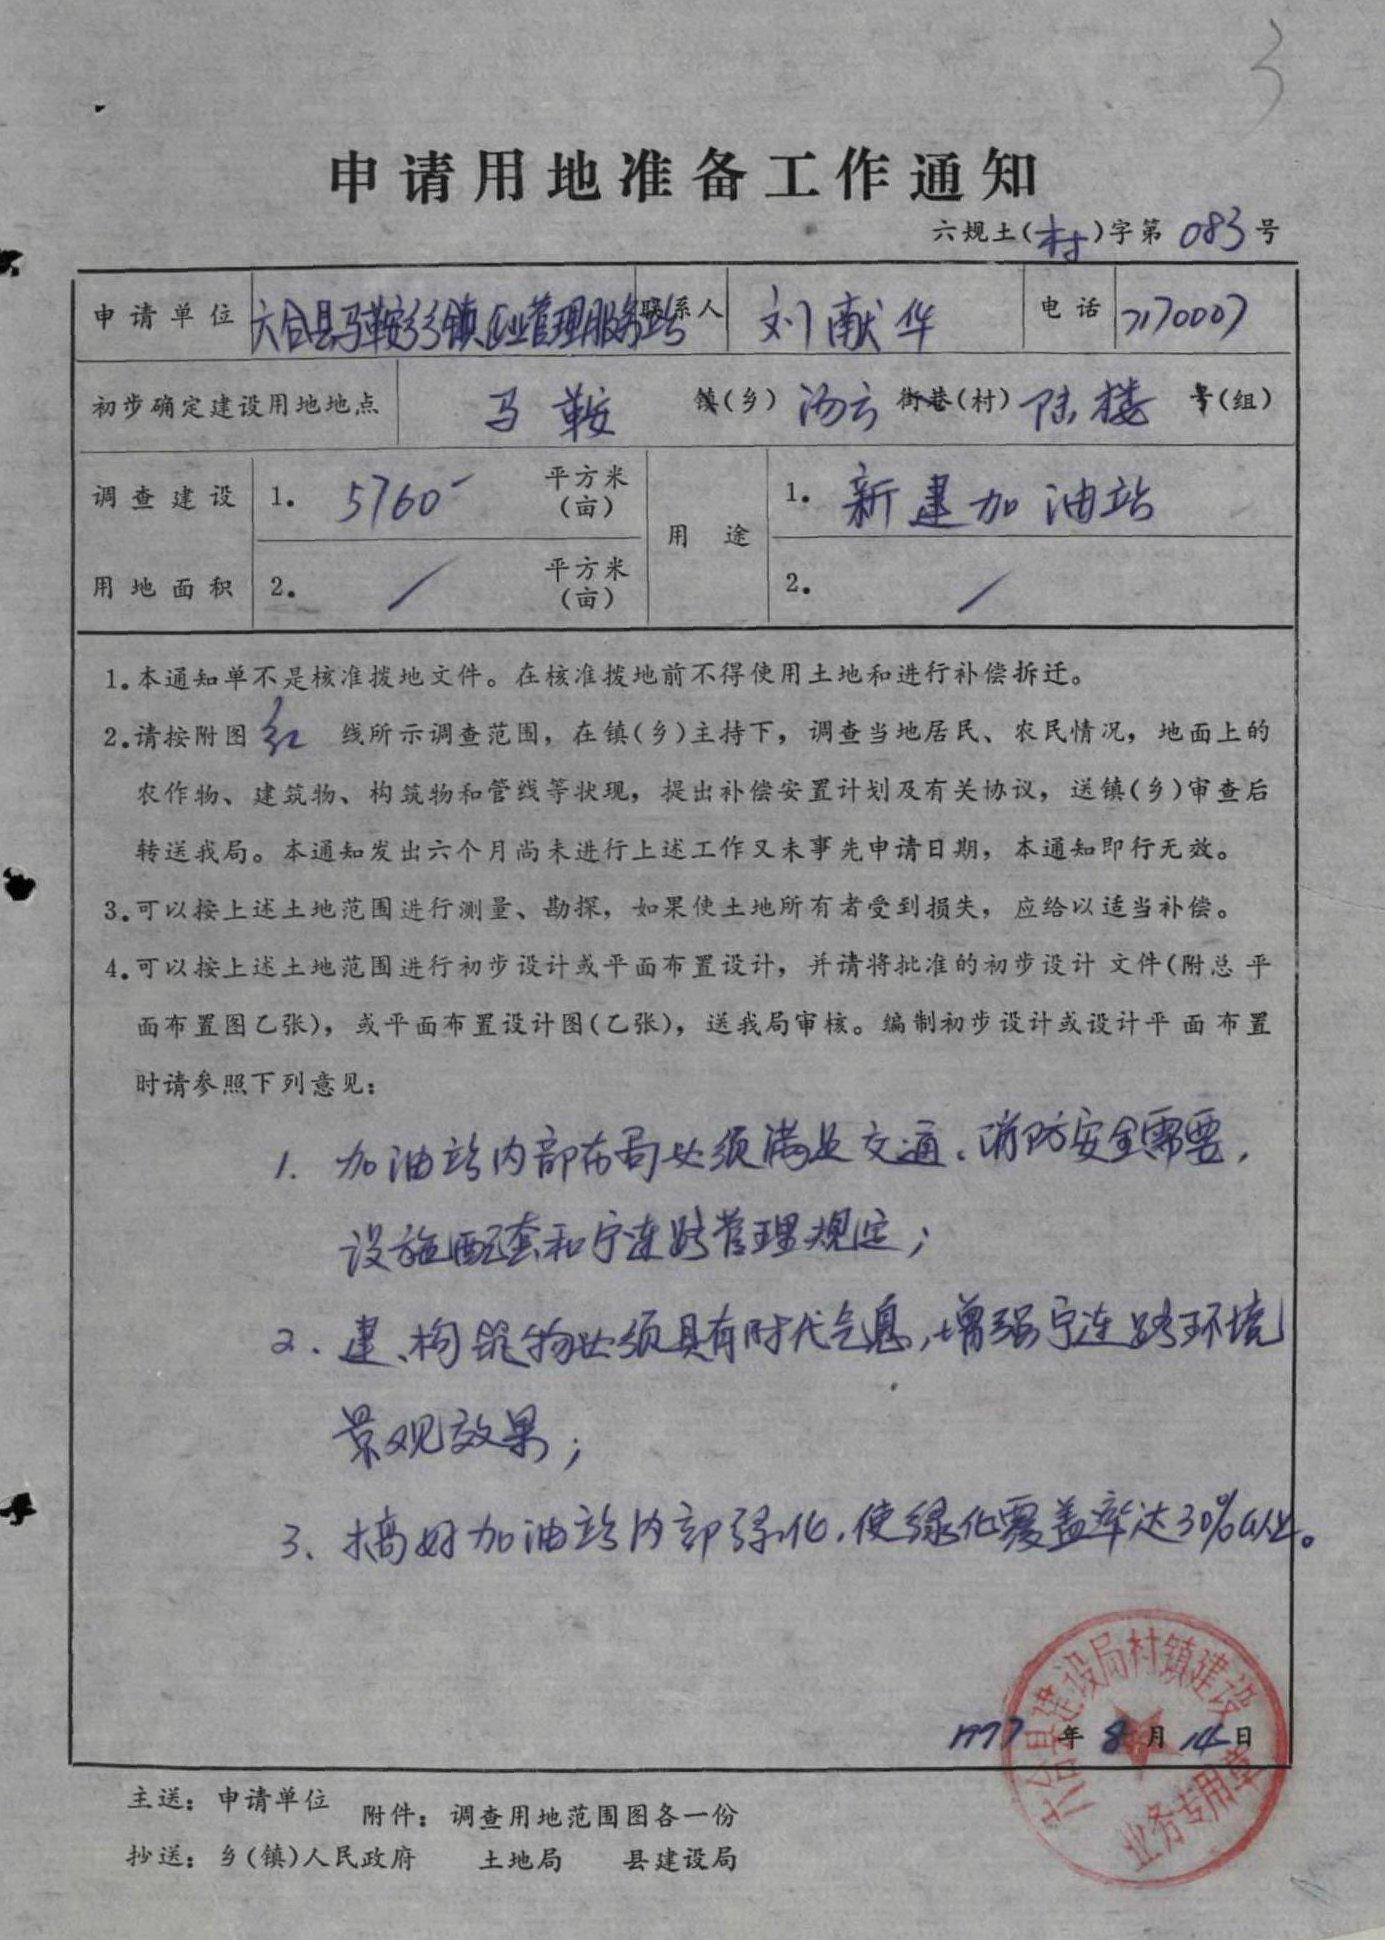 3
申请用地准备工作通知
六规土(村)字第 083 号
申请单位 六合县马鞍乡乡镇企业管理服务站 联系人 刘献华 电话 7170007
初步确定建设用地地点 马鞍 镇(乡) 汤云 街巷(村) 陆楼 号(组)
调查建设用地面积 1. 5760 平方米(亩) 用途 1. 新建加油站
2. / 平方米(亩) 2. /
1.本通知单不是核准拨地文件。在核准拨地前不得使用土地和进行补偿拆迁。
2.请按附图 红 线所示调查范围，在镇(乡)主持下，调查当地居民、农民情况，地面上的
农作物、建筑物、构筑物和管线等状现，提出补偿安置计划及有关协议，送镇(乡)审查后
转送我局。本通知发出六个月尚未进行上述工作又未事先申请日期，本通知即行无效。
3.可以按上述土地范围进行测量、勘探，如果使土地所有者受到损失，应给以适当补偿。
4.可以按上述土地范围进行初步设计或平面布置设计，并请将批准的初步设计文件(附总平
面布置图乙张)，或平面布置设计图(乙张)，送我局审核。编制初步设计或设计平面布置
时请参照下列意见：
1. 加油站内部布局必须满足交通、消防安全需要，
设施配套和宁连路管理规定；
2. 建、构筑物必须具有时代气息，增强宁连路环境
景观效果；
3、搞好加油站内部绿化，使绿化覆盖率达30%以上。
六合县建设局村镇建设
业务专用章
1997 年 8 月 14 日
主送：申请单位 附件：调查用地范围图各一份
抄送：乡(镇)人民政府 土地局 县建设局